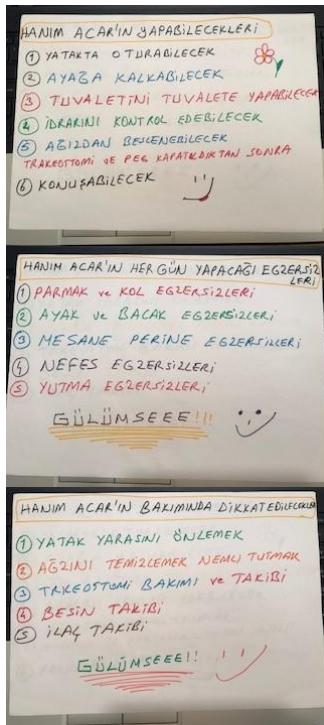 HANIM ACAR'IN YAPABİLECEKLERİ
1 YATAKTA OTURABİLECEK
2 AYAĞA KALKABİLECEK
3 TUVALETİNİ TUVALETE YAPABİLECEK
4 İDRARINI KONTROL EDEBİLECEK
5 AĞIZDAN BESLENEBİLECEK
TRAKEOSTOMİ ve PEG KAPATILDIKTAN SONRA
6 KONUŞABİLECEK
HANIM ACAR'IN HER GÜN YAPACAĞI EGZERSİZ
LERİ
1 PARMAK ve KOL EGZERSİZLERİ
2 AYAK ve BACAK EGZERSİZLERİ
3 MESANE PERİNE EGZERSİZLERİ
4 NEFES EGZERSİZLERİ
5 YUTMA EGZERSİZLERİ
GÜLÜMSEEE!!!
HANIM ACAR'IN BAKIMINDA DİKKAT EDİLECEKLER
1 YATAK YARASINI ÖNLEMEK
2 AĞZINI TEMİZLEMEK NEMLİ TUTMAK
3 TRKEOSTOMİ BAKIMI ve TAKİBİ
4 BESİN TAKİBİ
5 İLAÇ TAKİBİ
GÜLÜMSEEE!!